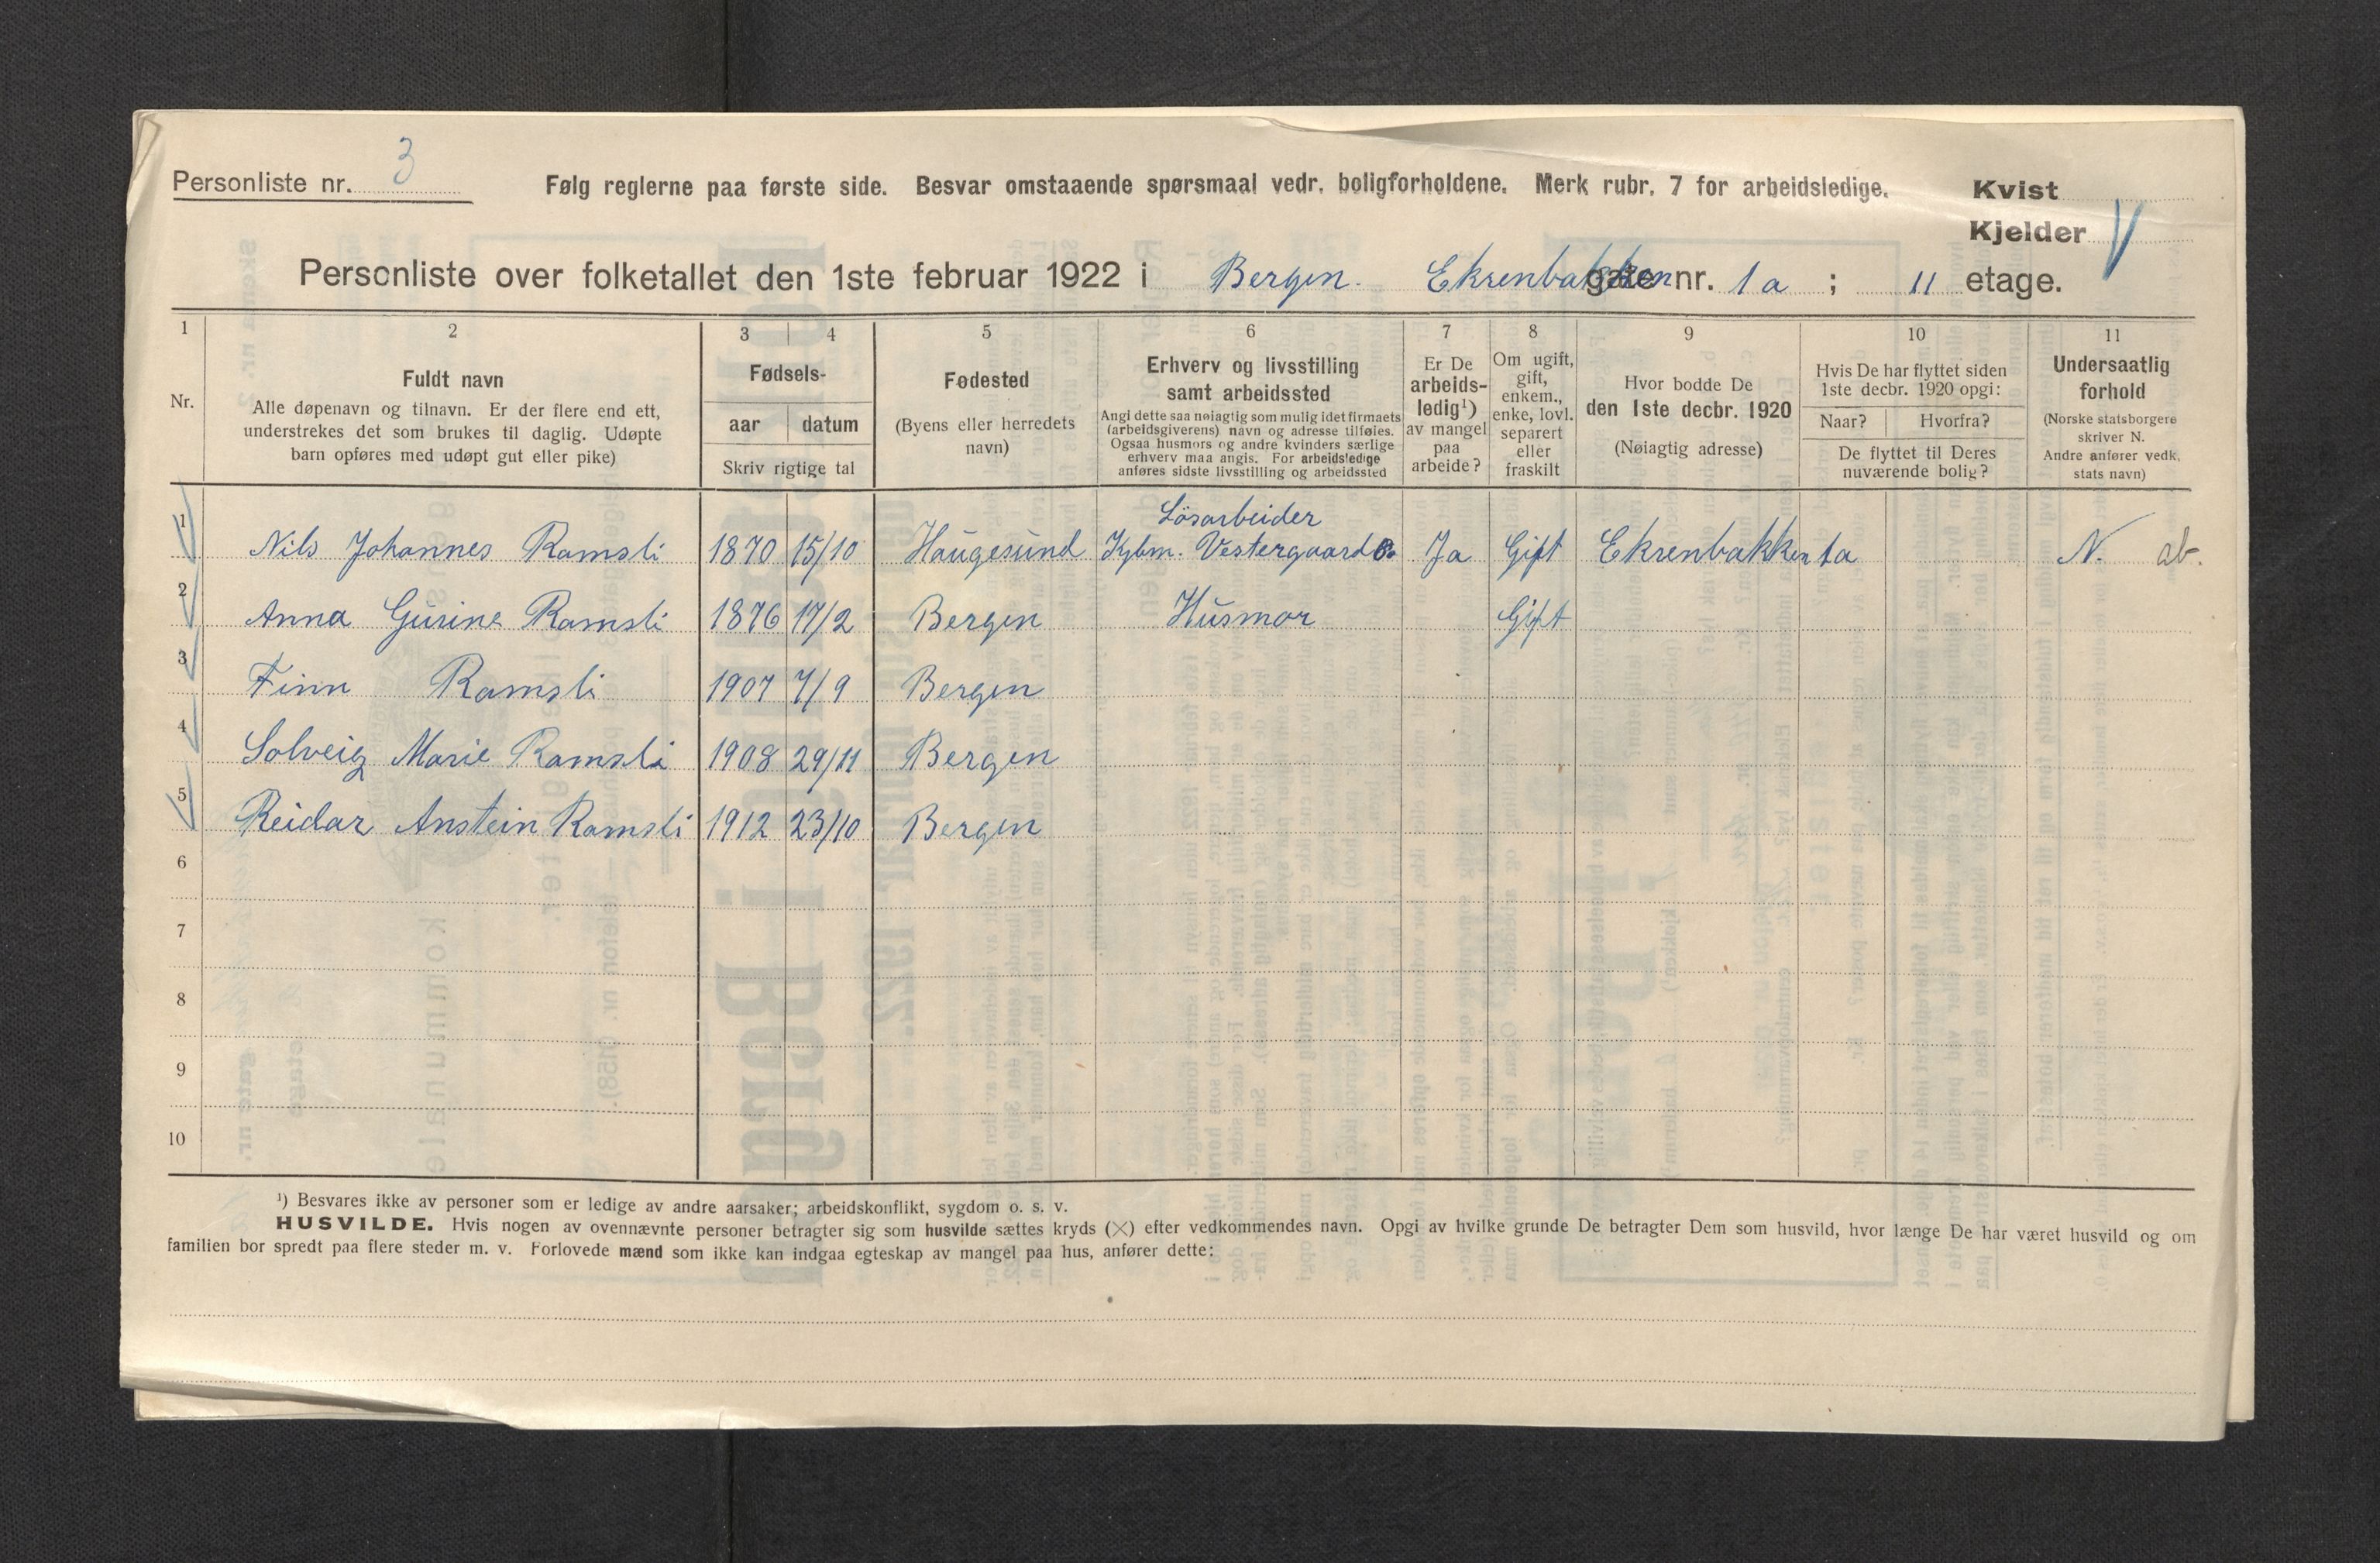 Personliste nr. 3
Følg reglerne paa første side. Besvar omstaaende spørsmaal vedr. boligforholdene. Merk rubr. 7 for arbeidsledige.
Kvist
Kjelder
Personliste over folketallet den 1ste februar 1922 i Bergen. Ekrenbakken gate nr. 1a ; 11 etage.
1 2 3 4 5 6 7 8 9 10 11
Nr.
Fuldt navn
Alle døpenavn og tilnavn. Er der flere end ett,
understrekes det som brukes til daglig. Udøpte
barn opføres med udøpt gut eller pike)
Fødsels-
aar datum
Skriv rigtige tal
Fødested
(Byens eller herredets
navn)
Erhverv og livsstilling
samt arbeidssted
Angi dette saa nøiagtig som mulig idet firmaets
(arbeidsgiverens) navn og adresse tilføies.
Ogsaa husmors og andre kvinders særlige
erhverv maa angis. For arbeidsledige
anføres sidste livsstilling og arbeidssted
Er De
arbeids-
ledig¹)
av mangel
paa
arbeide?
Om ugift,
gift,
enkem.,
enke, lovl.
separert
eller
fraskilt
Hvor bodde De
den 1ste decbr. 1920
(Nøiagtig adresse)
Hvis De har flyttet siden
1ste decbr. 1920 opgi:
Naar? Hvorfra?
De flyttet til Deres
nuværende bolig?
Undersaatlig
forhold
(Norske statsborgere
skriver N.
Andre anfører vedk.
stats navn)
Lösarbeider
1 Nils Johannes Ramsli 1870 15/10 Haugesund Kjbm. Vestergaard Ja Gift Ekrenbakken 1a N. ab.
2 Anna Gurine Ramsli 1876 17/2 Bergen Husmor Gift
3 Finn Ramsli 1907 7/9 Bergen
4 Solveig Marie Ramsli 1908 29/11 Bergen
5 Reidar Anstein Ramsli 1912 23/10 Bergen
6
7
8
9
10
¹) Besvares ikke av personer som er ledige av andre aarsaker; arbeidskonflikt, sygdom o. s. v.
HUSVILDE. Hvis nogen av ovennævnte personer betragter sig som husvilde sættes kryds (X) efter vedkommendes navn. Opgi av hvilke grunde De betragter Dem som husvild, hvor længe De har været husvild og om
familien bor spredt paa flere steder m. v. Forlovede mænd som ikke kan indgaa egteskap av mangel paa hus, anfører dette: